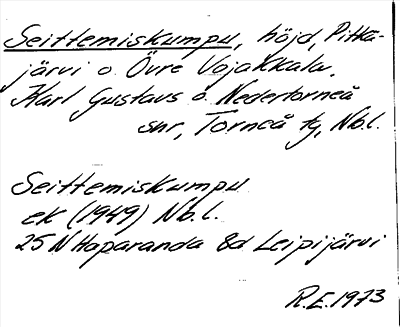 Seittemiskumpu, höjd, Pitkä-
järvi o. Övre Vojakkala,
Karl Gustavs o. Nedertorneå
snr, Torneå tg, Nb.l.
Seittemiskumpu
ek (1949) Nb.l.
25 N Haparanda 8d Leipijärvi
R.E. 1973